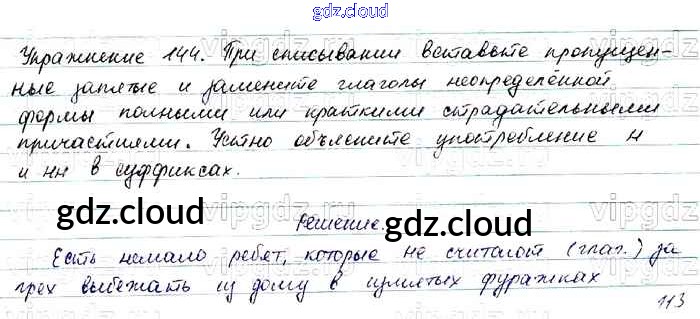 gdz.cloud
Упражнение 144. При списывании вставьте пропущен-
ные запятые и замените глаголы неопределённой
формы полными или краткими страдательными
причастиями. Устно объясните употребление н
и нн в суффиксах.
gdz.cloud Решение. gdz.cloud
Есть немало ребят, которые не считают (глаг.) за
грех выбежать из дому в измятых фуражках
113